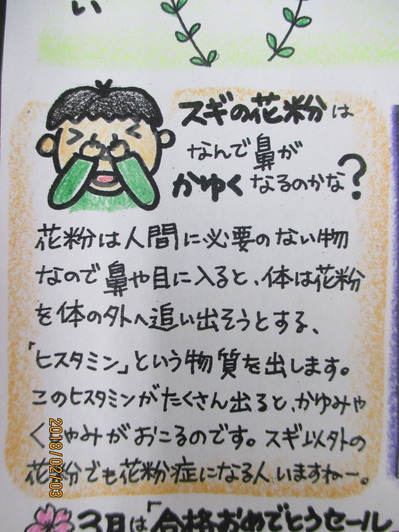 い
スギの花粉は
なんで鼻が
かゆくなるのかな?
花粉は人間に必要のない物
なので鼻や目に入ると、体は花粉
を体の外へ追い出そうとする、
「ヒスタミン」という物質を出します。
このヒスタミンがたくさん出ると、かゆみや
くしゃみがおこるのです。スギ以外の
花粉でも花粉症になる人いますねー。
3月は「合格おめでとうセール
2019/02/03